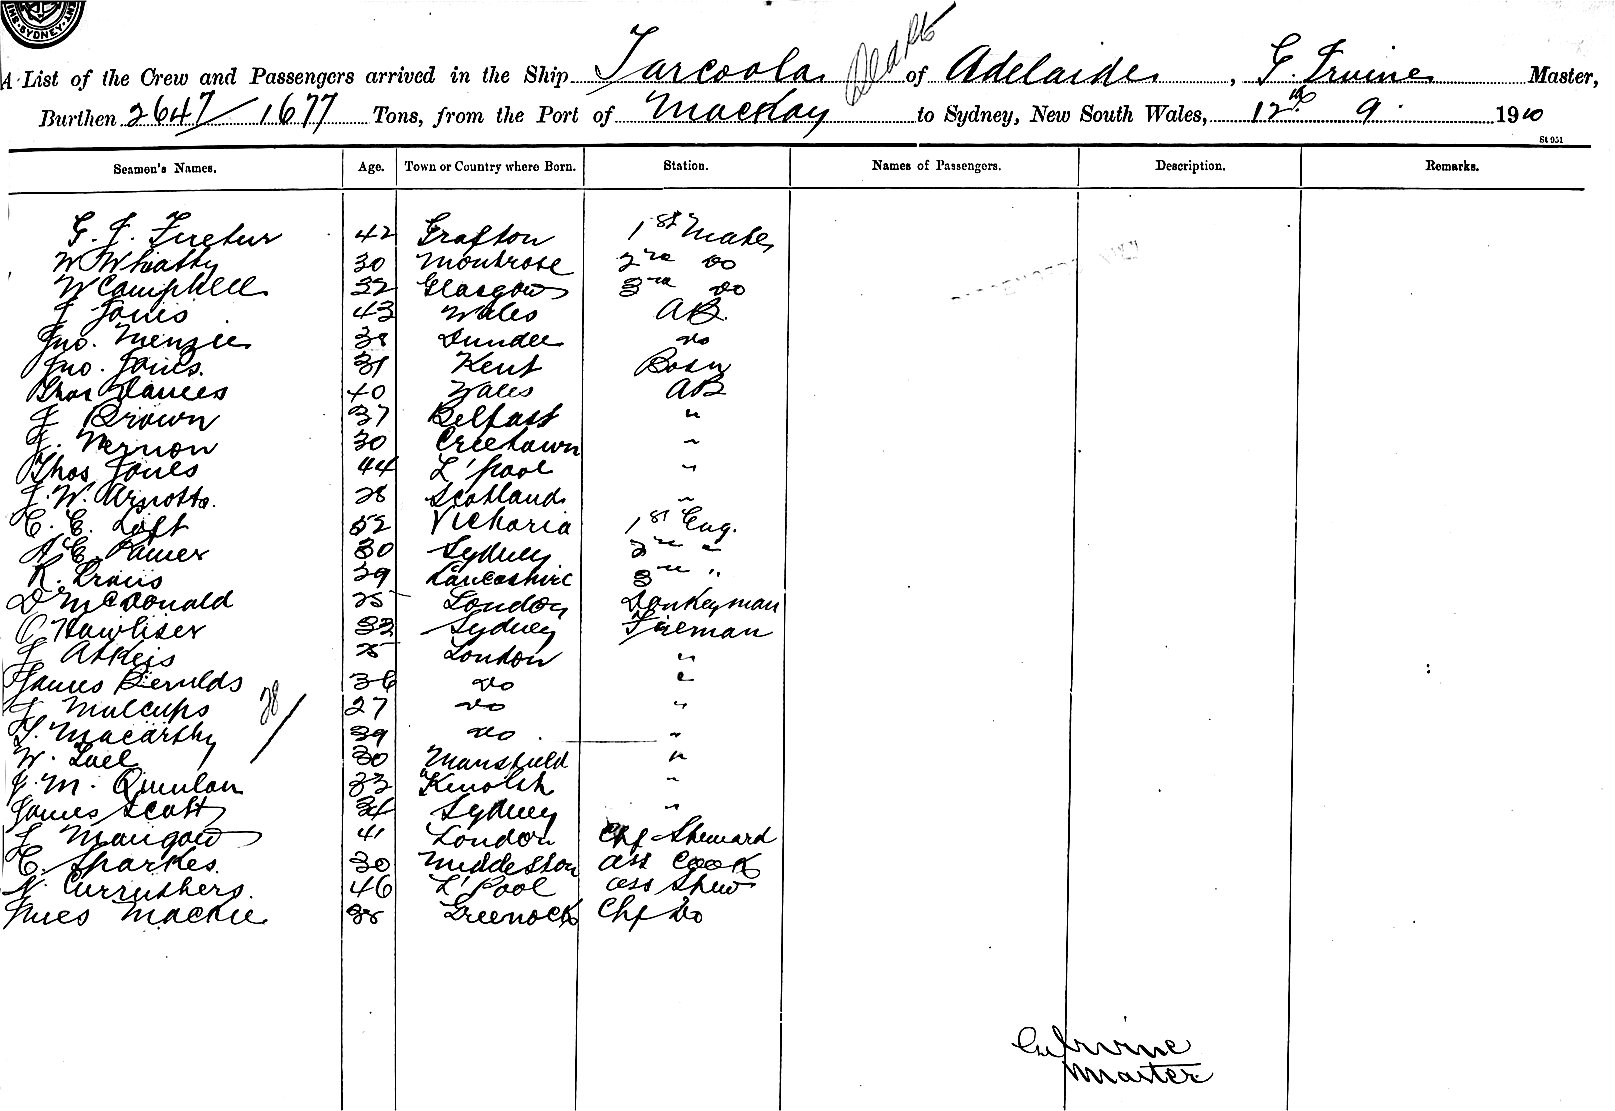 SYDNEY
A List of the Crew and Passengers arrived in the Ship Tarcoola of Adelaide, G. Irvine Master,
Burthen 2647/1677 Tons, from the Port of Mackay to Sydney, New South Wales, 12th 9 1910
St 951
Seamen's Names. Age. Town or Country where Born. Station. Names of Passengers. Description. Remarks.
G. F. 42 Grafton 1st Mate
W Whatty 30 Montrose 2nd Do
W Campbell 32 Glasgow 3rd Do
J Jones 43 Wales AB
Jno. Menzies 38 Dundee Do
Jno. Jones. 31 Kent Bosn
Thos Davies 40 Wales AB
J Brown 37 Belfast "
J. Vernon 30 Creetown "
Thos Jones 44 L'pool "
J. W. 28 Scotland "
C. E. Loft 52 Victoria 1st Eng.
30 Sydney 2nd "
R. 39 Lancashire 3rd "
D McDonald 25 London Donkeyman
C 33 Sydney Fireman
J 25 London "
James 36 Do "
J 27 Do "
Macarthy 39 Do "
W. 30 Mansfield "
J. M. Quinlan 33 "
James Scott 34 Sydney "
J 41 London Chf Steward
C. Sparkes. 30 Ass Cook
N. Curruthers. 46 L'Pool Ass Stew
Mackie 38 Greenock Chf Do
28
Irvine
Master